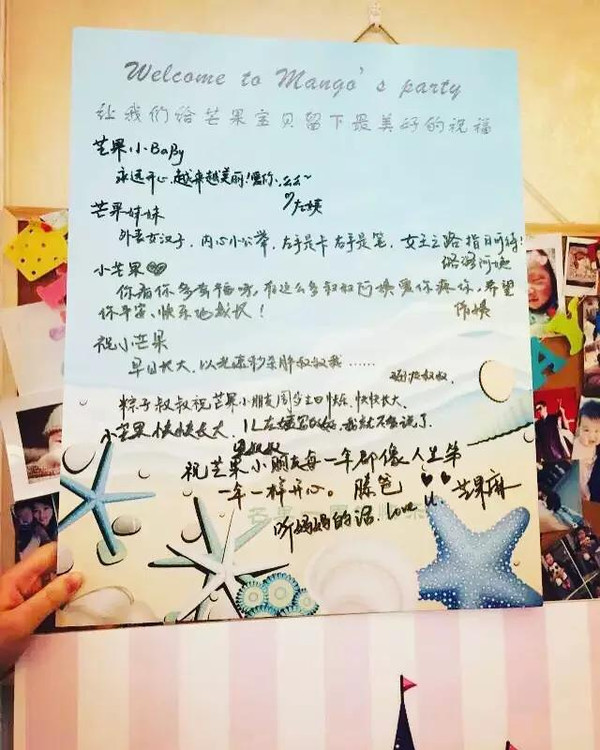 Welcome to Mango's party
让我们给芒果宝贝留下最美好的祝福
芒果小BaBy
永远开心,越来越美丽!爱你,么么~
♡左姨
芒果妹妹
外表女汉子,内心小公举,左手是卡右手是笔,女王之路指日可待!
阿姨
小芒果
你看你多幸福呀,有这么多叔叔阿姨爱你疼你,希望
你平安、快乐地成长!
陈姨
祝小芒果
早日长大,以光速秒杀胖叔叔我……
叔叔.
粽子叔叔祝芒果小朋友周岁生日快乐,快快长大.
小芒果快快长大,
祝芒果小朋友每一年都像人生第
一年一样开心。 滕爸
听妈妈的话.love u. ♥♥芒果麻